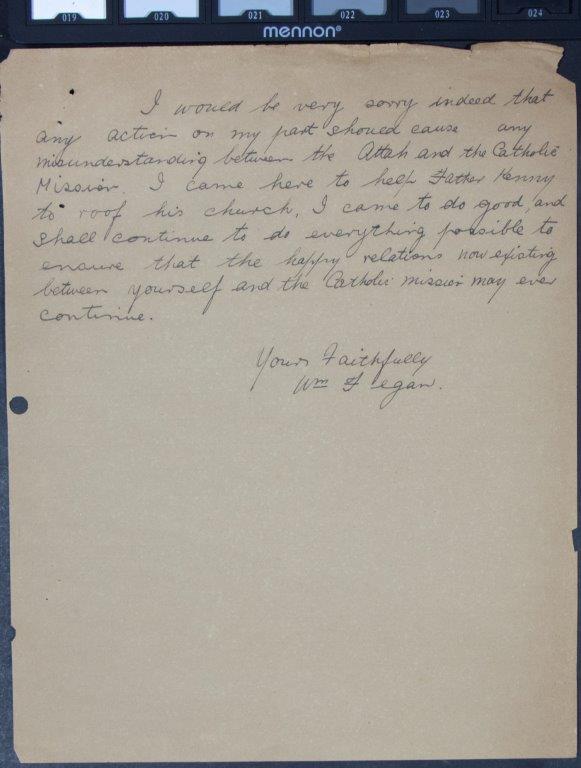 019 020 021 022 023 024
mennon®
I would be very sorry indeed that
any action on my part should cause any
misunderstanding between the Attah and the Catholic
Mission. I came here to help Father Kenny
to roof his church, I came to do good, and
shall continue to do everything possible to
ensure that the happy relations now existing
between yourself and the Catholic mission may ever
continue.
Yours Faithfully
Wm F egan.